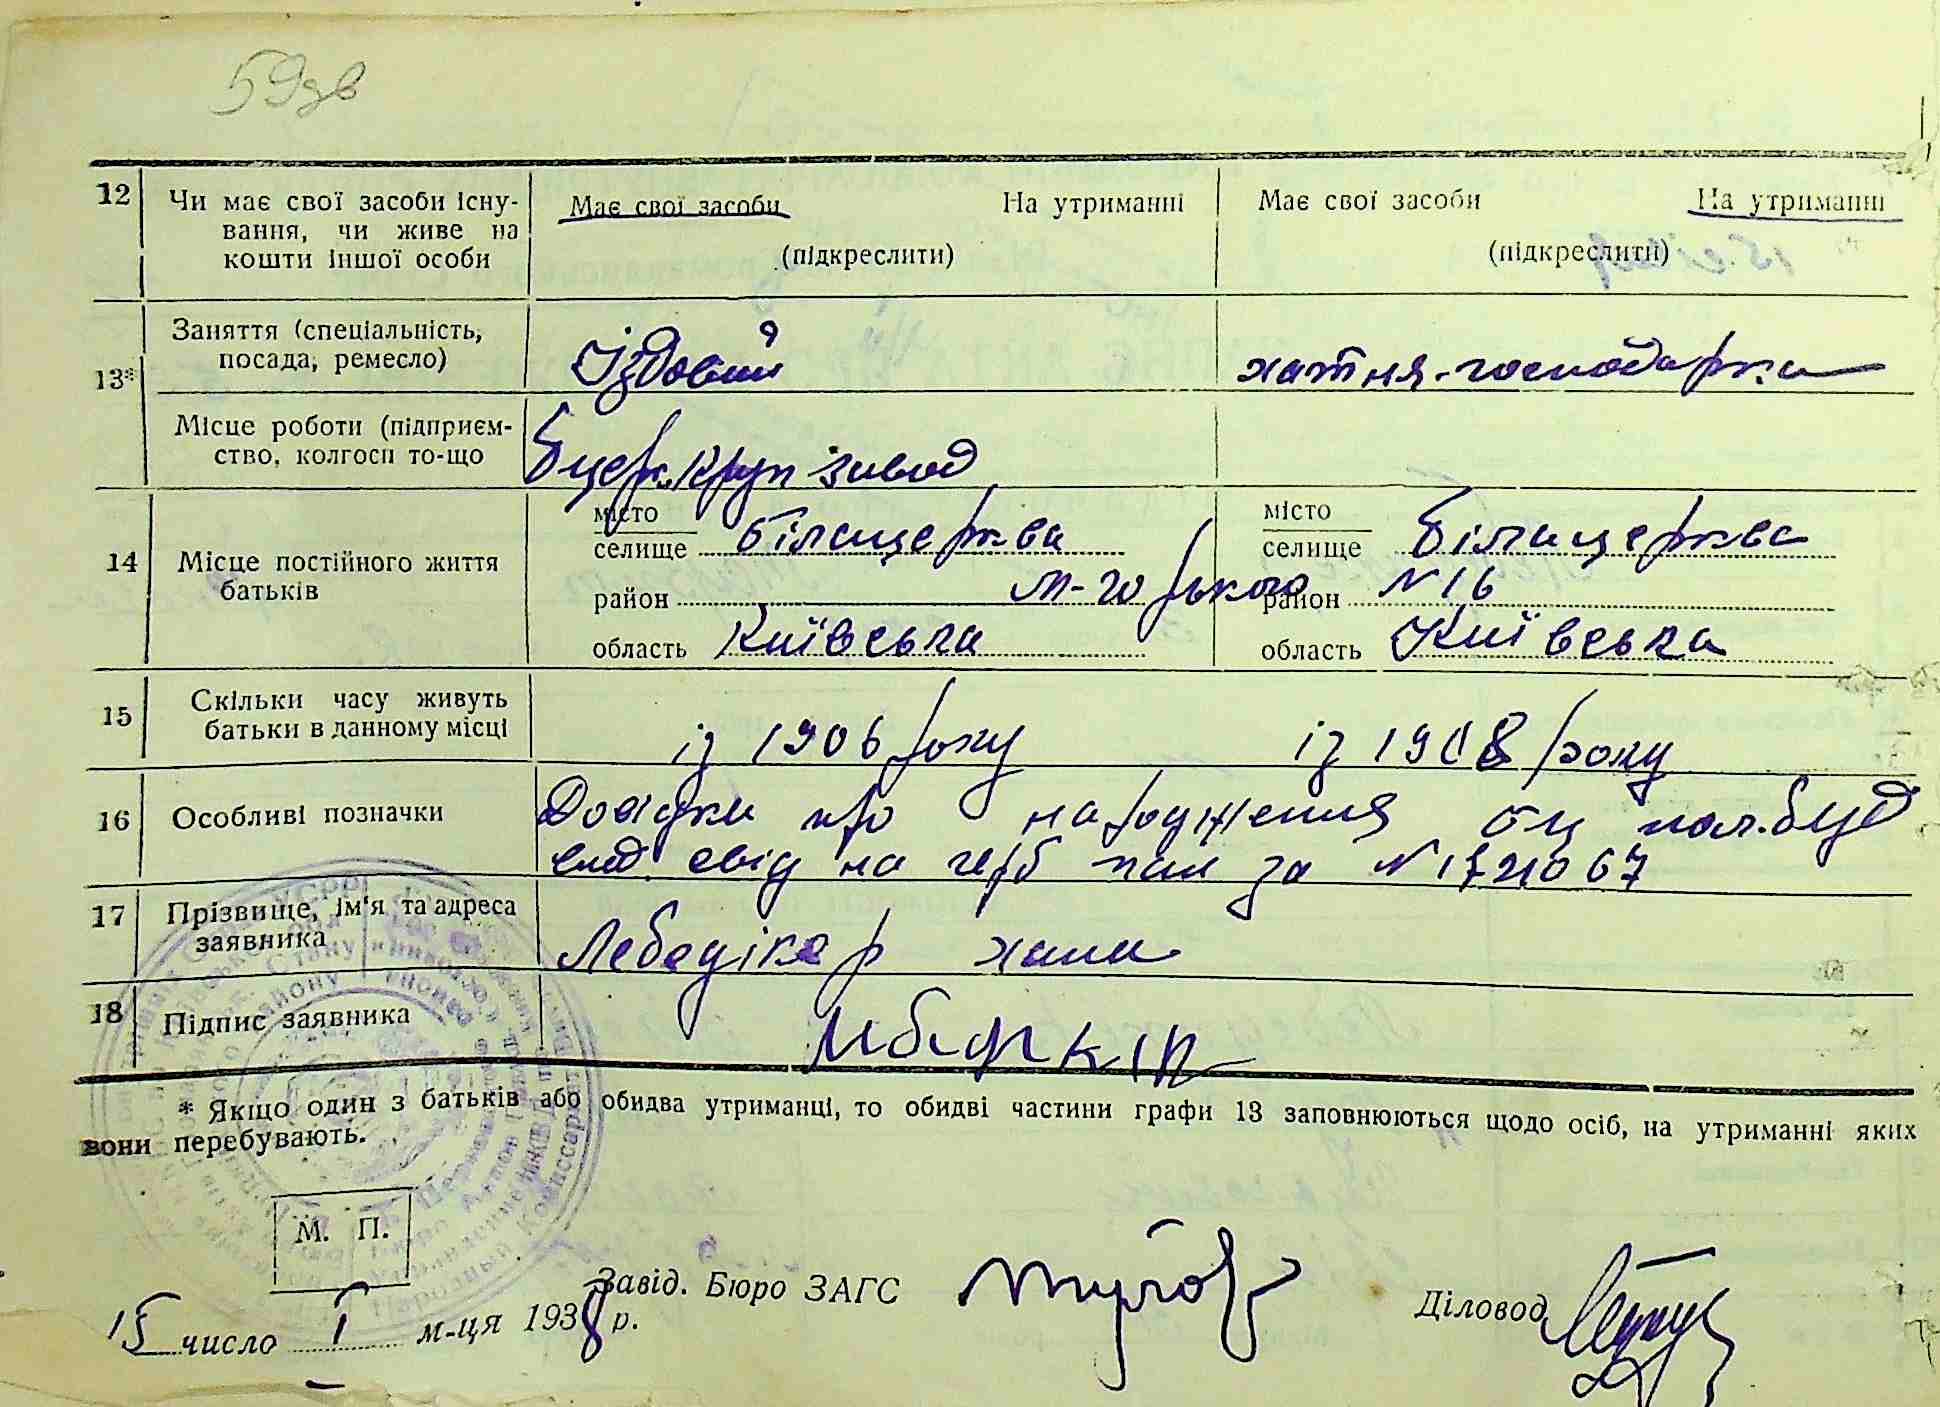 59зв
12 Чи має свої засоби існу- Має свої засоби На утриманні Має свої засоби На утриманні
вання, чи живе на (підкреслити) (підкреслити)
кошти іншої особи
13* Заняття (спеціальність, Їздовий хатня-господарка
посада, ремесло)
Місце роботи (підприєм- Бцерк. Круп завод
ство, колгосп то-що
14 Місце постійного життя місто місто
батьків селище Білацерква селище Білацерква
район М-Горького район N 16
область Київська область Київська
15 Скільки часу живуть
батьки в данному місці із 1906 року із 1908 року
16 Особливі позначки Довідки про народження
свід на за N
17 Прізвище, ім'я та адреса
заявника Лебедікер хана
18 Підпис заявника
* Якщо один з батьків або обидва утриманці, то обидві частини графи 13 заповнюються щодо осіб, на утриманні яких
вони перебувають.
М. П.
Завід. Бюро ЗАГС Діловод
15 число I м-ця 1938 р.